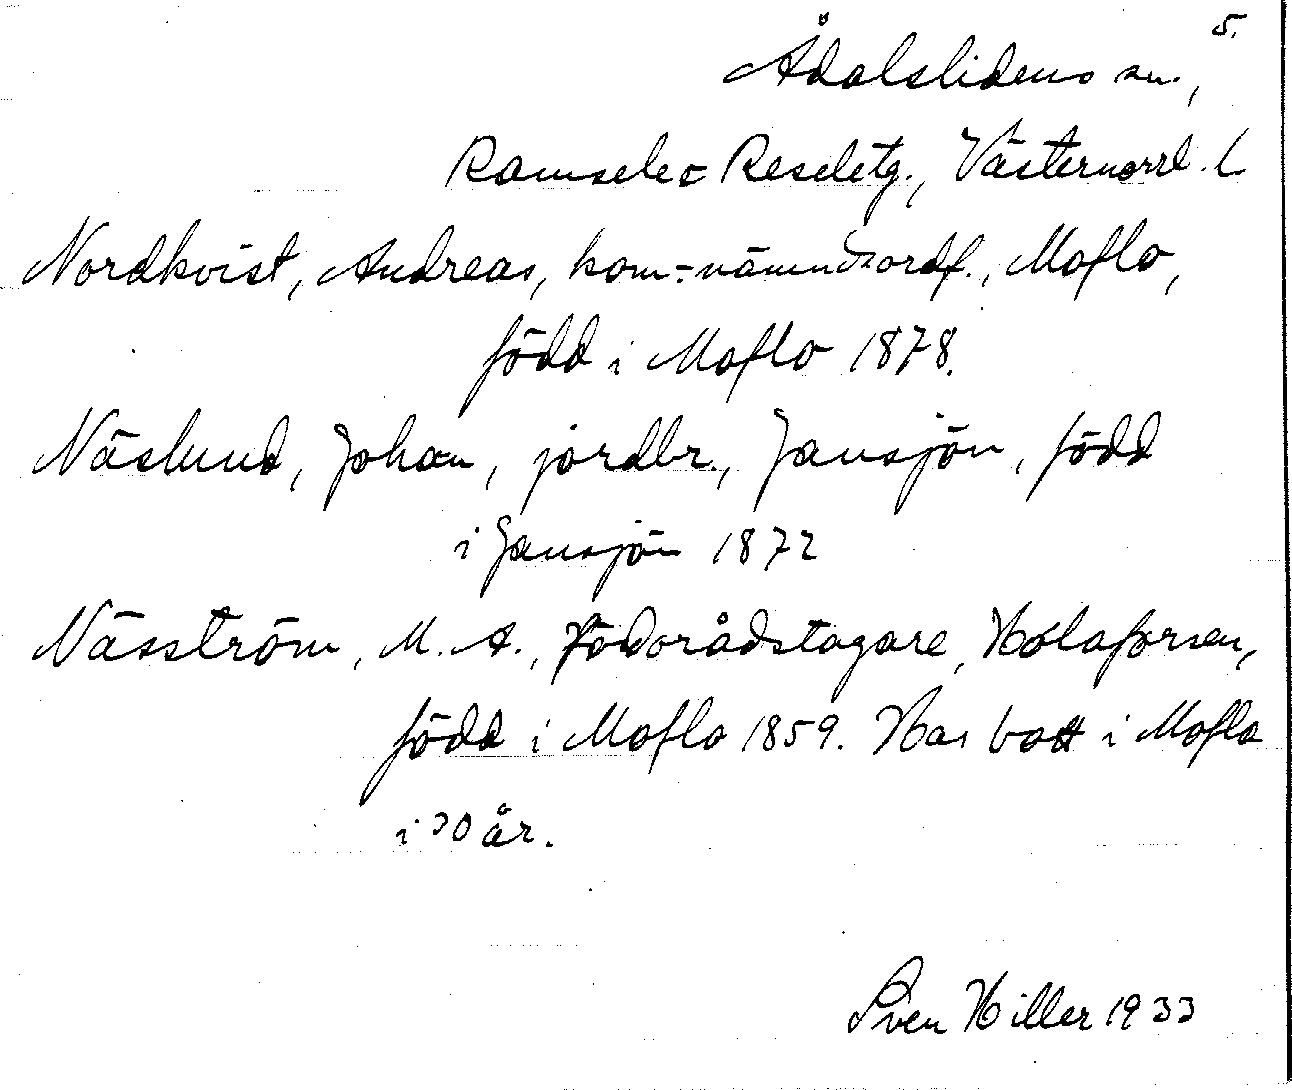 5.
Ådalslidens sn.,
Ramsele o Reseletg., Västernorrl. l
Nordkvist, Andreas, kom.-nämndsordf., Moflo,
född i Moflo 1878.
Näslund, Johan, jordbr., Jansjön, född
i Jansjön 1872
Näsström, M. A., födorådstagare, Holaforsen,
född i Moflo 1859. Har bott i Moflo
i 30 år.
Sven Hiller 1933